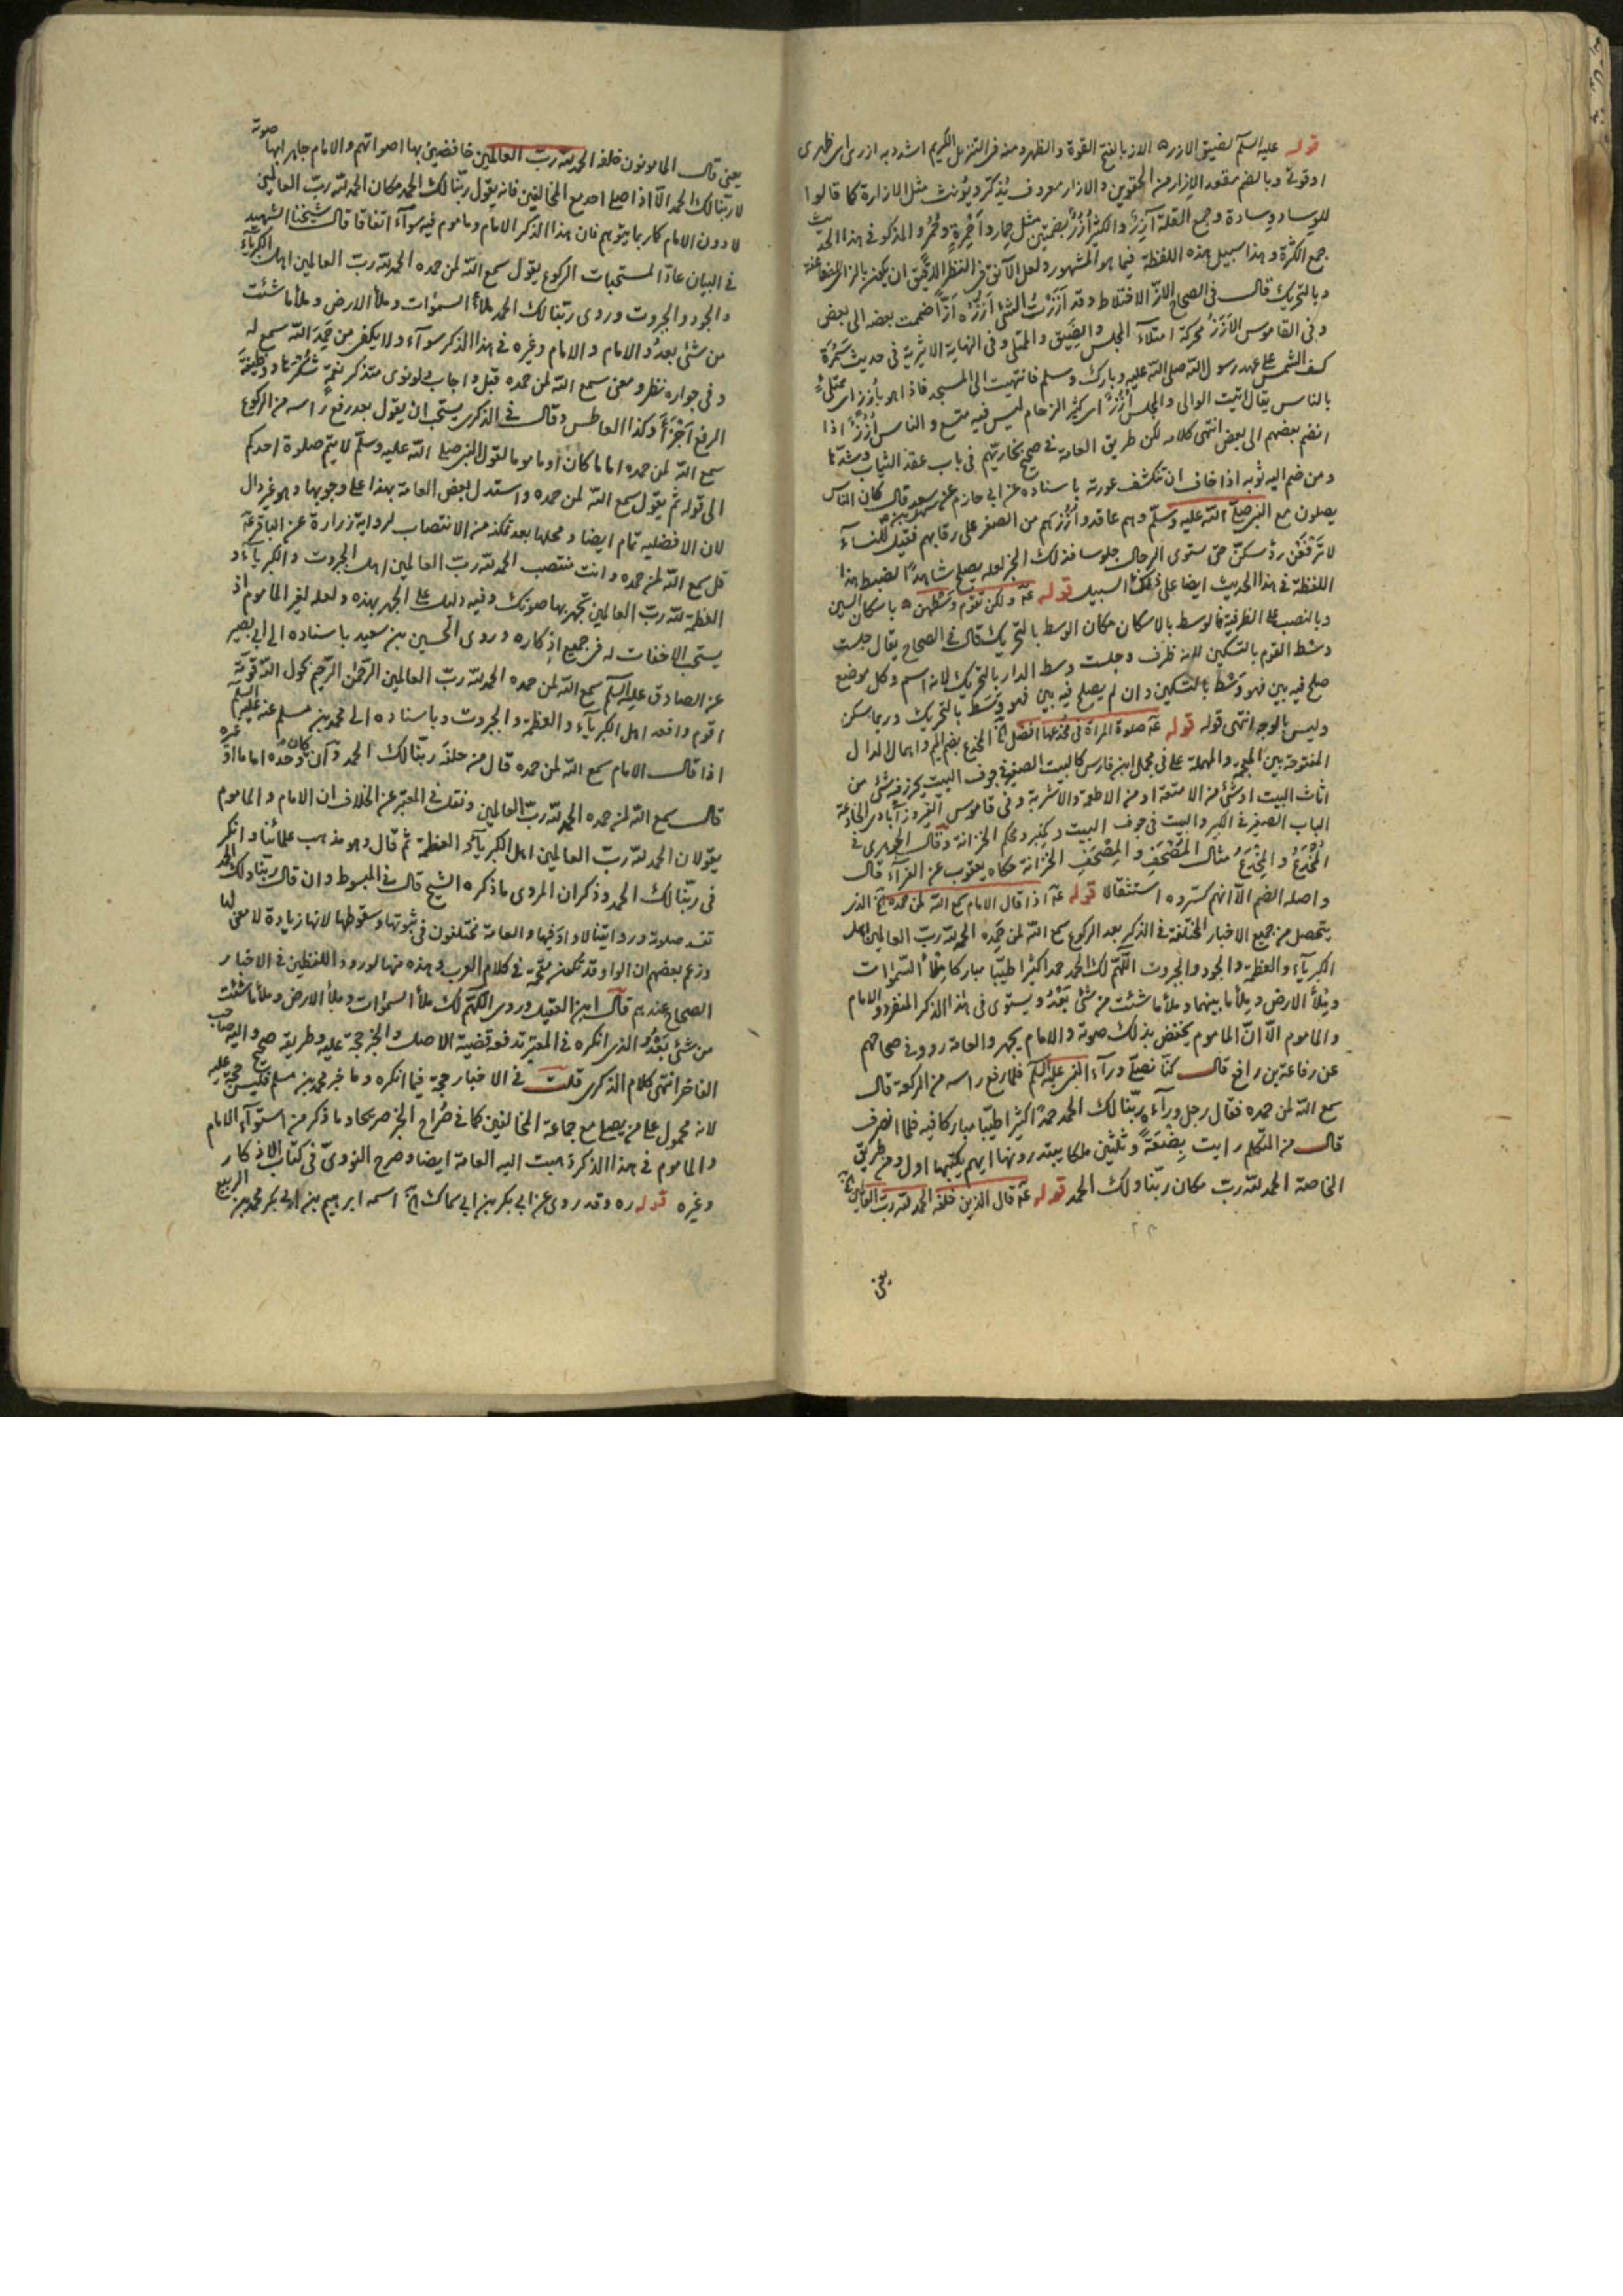 قوله عليه السلم لضيق الازر ه الازر بالفتح القوة والظهر ومنه فى التنزيل الكريم اشدد به ازرى اى ظهرى
او قوتى وبالضم معقد الازار من الحقوين والازار معروف يُذكّر ويُونث مثل الازارة كما قالوا
للوساد وسادة وجمع القلة آزِرَة والكثير اُزُرٌ بضمتين مثل حِمار واَحْمِرة وحُمُر والمذكور فى هذا الحديث
جمع الكثرة وهذا سبيل هذه اللفظة فيما هو المشهور ولعل الآنق فى النظر الدقيق ان يكون بالزائين
وبالتحريك قال فى الصحاح الازّ الاختلاط وقد اَزَزْتُ الشئ اَؤُزُّه اَزًّا ضممت بعضه الى بعض
وفى القاموس الاَزَزُ محركة امتلاء المجلس والضيق والممتلى وفى النهاية الاثيرية فى حديث سَمُرَة
كسفت الشمس على عهد رسول الله صلى الله عليه وبارك وسلم فانتهيت الى المسجد فاذا هو بأزز اى ممتلئ
بالناس يقال اتيت الوالى والمجلس أزز اى كثير الزحام ليس فيه متسع والناس أزز اذا
انضم بعضهم الى بعض انتهى كلامه لكن طريق العامة فى صحيح بخاريّهم فى باب عقد الثياب وشدّها
ومن ضم اليه ثوبه اذا خاف ان تنكشف عورته باسناده عن ابى حازم عن سهل بن سعد قال كان الناس
يصلون مع النبى صلى الله عليه وسلم وهم عاقدوا اُزُرهم من الصغر على رقابهم فقيل للنساء
لا تَرْفَعْن رؤسكنّ حتى يستوى الرجال جلوسا فذلك الخبر لعله يصلح شاهدًا لضبط هذا
اللفظة فى هذا الحديث ايضا على ذلك السبيل قوله عه ولكن تقوم وسْطهن ه باسكان السين
وبالنصب على الظرفية فالوسط بالاسكان مكان الوسط بالتحريك قال فى الصحاح يقال جلست
وسْط القوم بالتسكين لانه ظرف وجلست وسط الدار بالتحريك لانه اسم وكل موضع
صلح فيه بين فهو وَسْط بالتسكين وان لم يصلح فيه بين فهو وَسَط بالتحريك وربما سكن
وليس بالوجه انتهى قوله قوله عه صلوة المراة فى مُخْدعها افضل الخ المخدع بضم الميم واهمال الدال
المفتوحة بين المعجمة والمهملة على فى مجمل ابن فارس كالبيت الصغير فى جوف البيت يحرز فيه شئ من
اثاث البيت او شئ من الامتعة او من الاطعمة والاشربة وفى قاموس الفيروزآبادى الخادعة
الباب الصغير فى الكبير والبيت فى جوف البيت وكمِنبر ومُحكم الخزانة وقال الجوهرى فى
المُخْدَعُ والمِخْدَعُ مثال المُصْحَفِ والمِصْحَفِ الخزانة حكاه يعقوب عن الفراء قال
واصله الضم الا انهم كسروه استثقالا قوله عه اذا قال الامام سمع الله لمن حمده الخ الذى
يتحصل من جميع الاخبار المختلفة فى الذكر بعد الركوع سمع الله لمن حَمِده الحمد لله ربّ العالمين اهل
الكبرياء والعظمة والجود والجبروت اللّهمّ لك الحمد حمدا كثيرا طيّبا مباركا مِلْأ السّموات
ومِلْأَ الارض ومِلْأ ما بينهما وملأ ما شئت من شئ بَعْدُ ويستوى فى هذا الذكر المنفرد والامام
والماموم الّا انّ الماموم يخفض بذلك صوته والامام يجهر والعامة رووا فى صحاحهم
عن رفاعة بن رافع قال كنّا نصلّى ورآء النبى عليه السلم فلما رفع راسه من الركعة قال
سمع الله لمن حمده فقال رجل ورآءه ربّنا لك الحمد حمدًا كثيرا طيّبا مباركا فيه فلما انصرف
قال من المتكلم رايت بِضْعَةً وثلثين ملكا يبتدرونها ايهم يكتبها اول ومن طريق
الخاصة الحمد لله ربّ مكان ربّنا ولك الحمد قوله عه قال الذين خلفه الحمد لله ربّ العالمين الخ
يعنى
يعنى قال المامومون خلفه الحمد لله ربّ العالمين خافضين بها اصواتهم والامام جاهر بها صوته
لا ربّنا لك الحمد الا اذا صلى احد مع المخالفين فانه يقول ربّنا لك الحمد مكان الحمد لله ربّ العالمين
لا دون الامام كما ربما يتوهم فان هذا الذكر الامام وماموم فيه سوآء اتفاقا قال شيخنا الشهيد
فى البيان عادّا لمستحبات الركوع يقول سمع الله لمن حمده الحمد لله ربّ العالمين اهل الكبرياء
والجود والجبروت وروى ربّنا لك الحمد ملأ السموات وملأ الارض وملأ ما شئت
من شئ بعدُ والامام والامام وغيره فى هذا الذكر سوآء ولا يكفى من حَمِدَ الله سمع له
وفى جوازه نظر ومعنى سمع الله لمن حمده قبل واجاب ولو نوى متذكر نعمةٍ شكرها ووظيفة
الرفع اَجْزَأَ وكذا العاطس وقال فى الذكرى يستحب ان يقول بعد رفع راسه من الركوع
سمع الله لمن حمده اماما كان او ماموما لقول النبى صلى الله عليه وسلم لا يتم صلوة احدكم
الى قوله ثم يقول سمع الله لمن حمده واستدل بعض العامة بهذا على وجوبها وهو غير دال
لان الافضليه تمام ايضا ومحلها بعد تمكنه من الانتصاب لرواية زرارة عن الباقر عه
قل سمع الله لمن حمده وانت منتصب الحمد لله ربّ العالمين اهل الجبروت والكبرياء و
العظمة لله ربّ العالمين تجهر بها صوتك وفيه دليل على الجهر بهذه ولعله لغير الماموم اذ
يستحب الاخفات له فى جميع اذكاره وروى الحسين بن سعيد باسناده الى ابى بصير
عن الصادق عليه السلم سمع الله لمن حمده الحمد لله ربّ العالمين الرّحمن الرّحيم بحول الله وقوّته
اقوم واقعد اهل الكبرياء والعظمة والجبروت وباسناده الى محمد بن مسلم عنه عليه السلم
اذا قال الامام سمع الله لمن حمده قال من خلفَه ربّنا لك الحمد وان كان وَحْدَه اماما او غيره
قال سمع الله لمن حمده الحمد لله ربّ العالمين ونقل فى المعتبر عن الخلاف ان الامام والماموم
يقولان الحمد لله ربّ العالمين اهل الكبرياء والعظمة ثم قال وهو مذهب علمائنا وانكر
فى ربّنا لك الحمد وذكر ان المروى ما ذكره الشيخ قال فى المبسوط وان قال ربّنا ولك الحمد
تفسد صلوته ورواياتنا لا واو فيها والعامة مختلفون فى ثبوتها وسقوطها لانها زيادة لا معنى لها
وزعم بعضهم ان الواو قد تكون مقحمة فى كلام العرب وهذه منها لورود اللفظين فى الاخبار
الصحاح عندهم قال ابن ابى عقيل وروى اللّهمّ لك ملأ السموات وملأ الارض وملأ ما شئت
من شئ بَعْدُ والذى انكره فى المعتبر تدفعه قضية الاصل والخبر حجة عليه وطريقه صحيح واليه ذهب صاحب
الفاخر انتهى كلام الذكرى قلت فى الاخبار حجة فيما انكره وما خبر محمد بن مسلم فليس حجة عليه
لانه محمول على من يصلى مع جماعة المخالفين كما فى صُراح الخبر صريحا وما ذكر من استوآء الامام
والماموم فى هذا الذكر ذهبت اليه العامة ايضا وصرح النووىّ فى كتاب الاذكار
وغيره قوله ره وقد روى عن ابى بكر بن ابى سماك الخ اسمه ابرهيم بن ابى بكر محمد بن الربيع